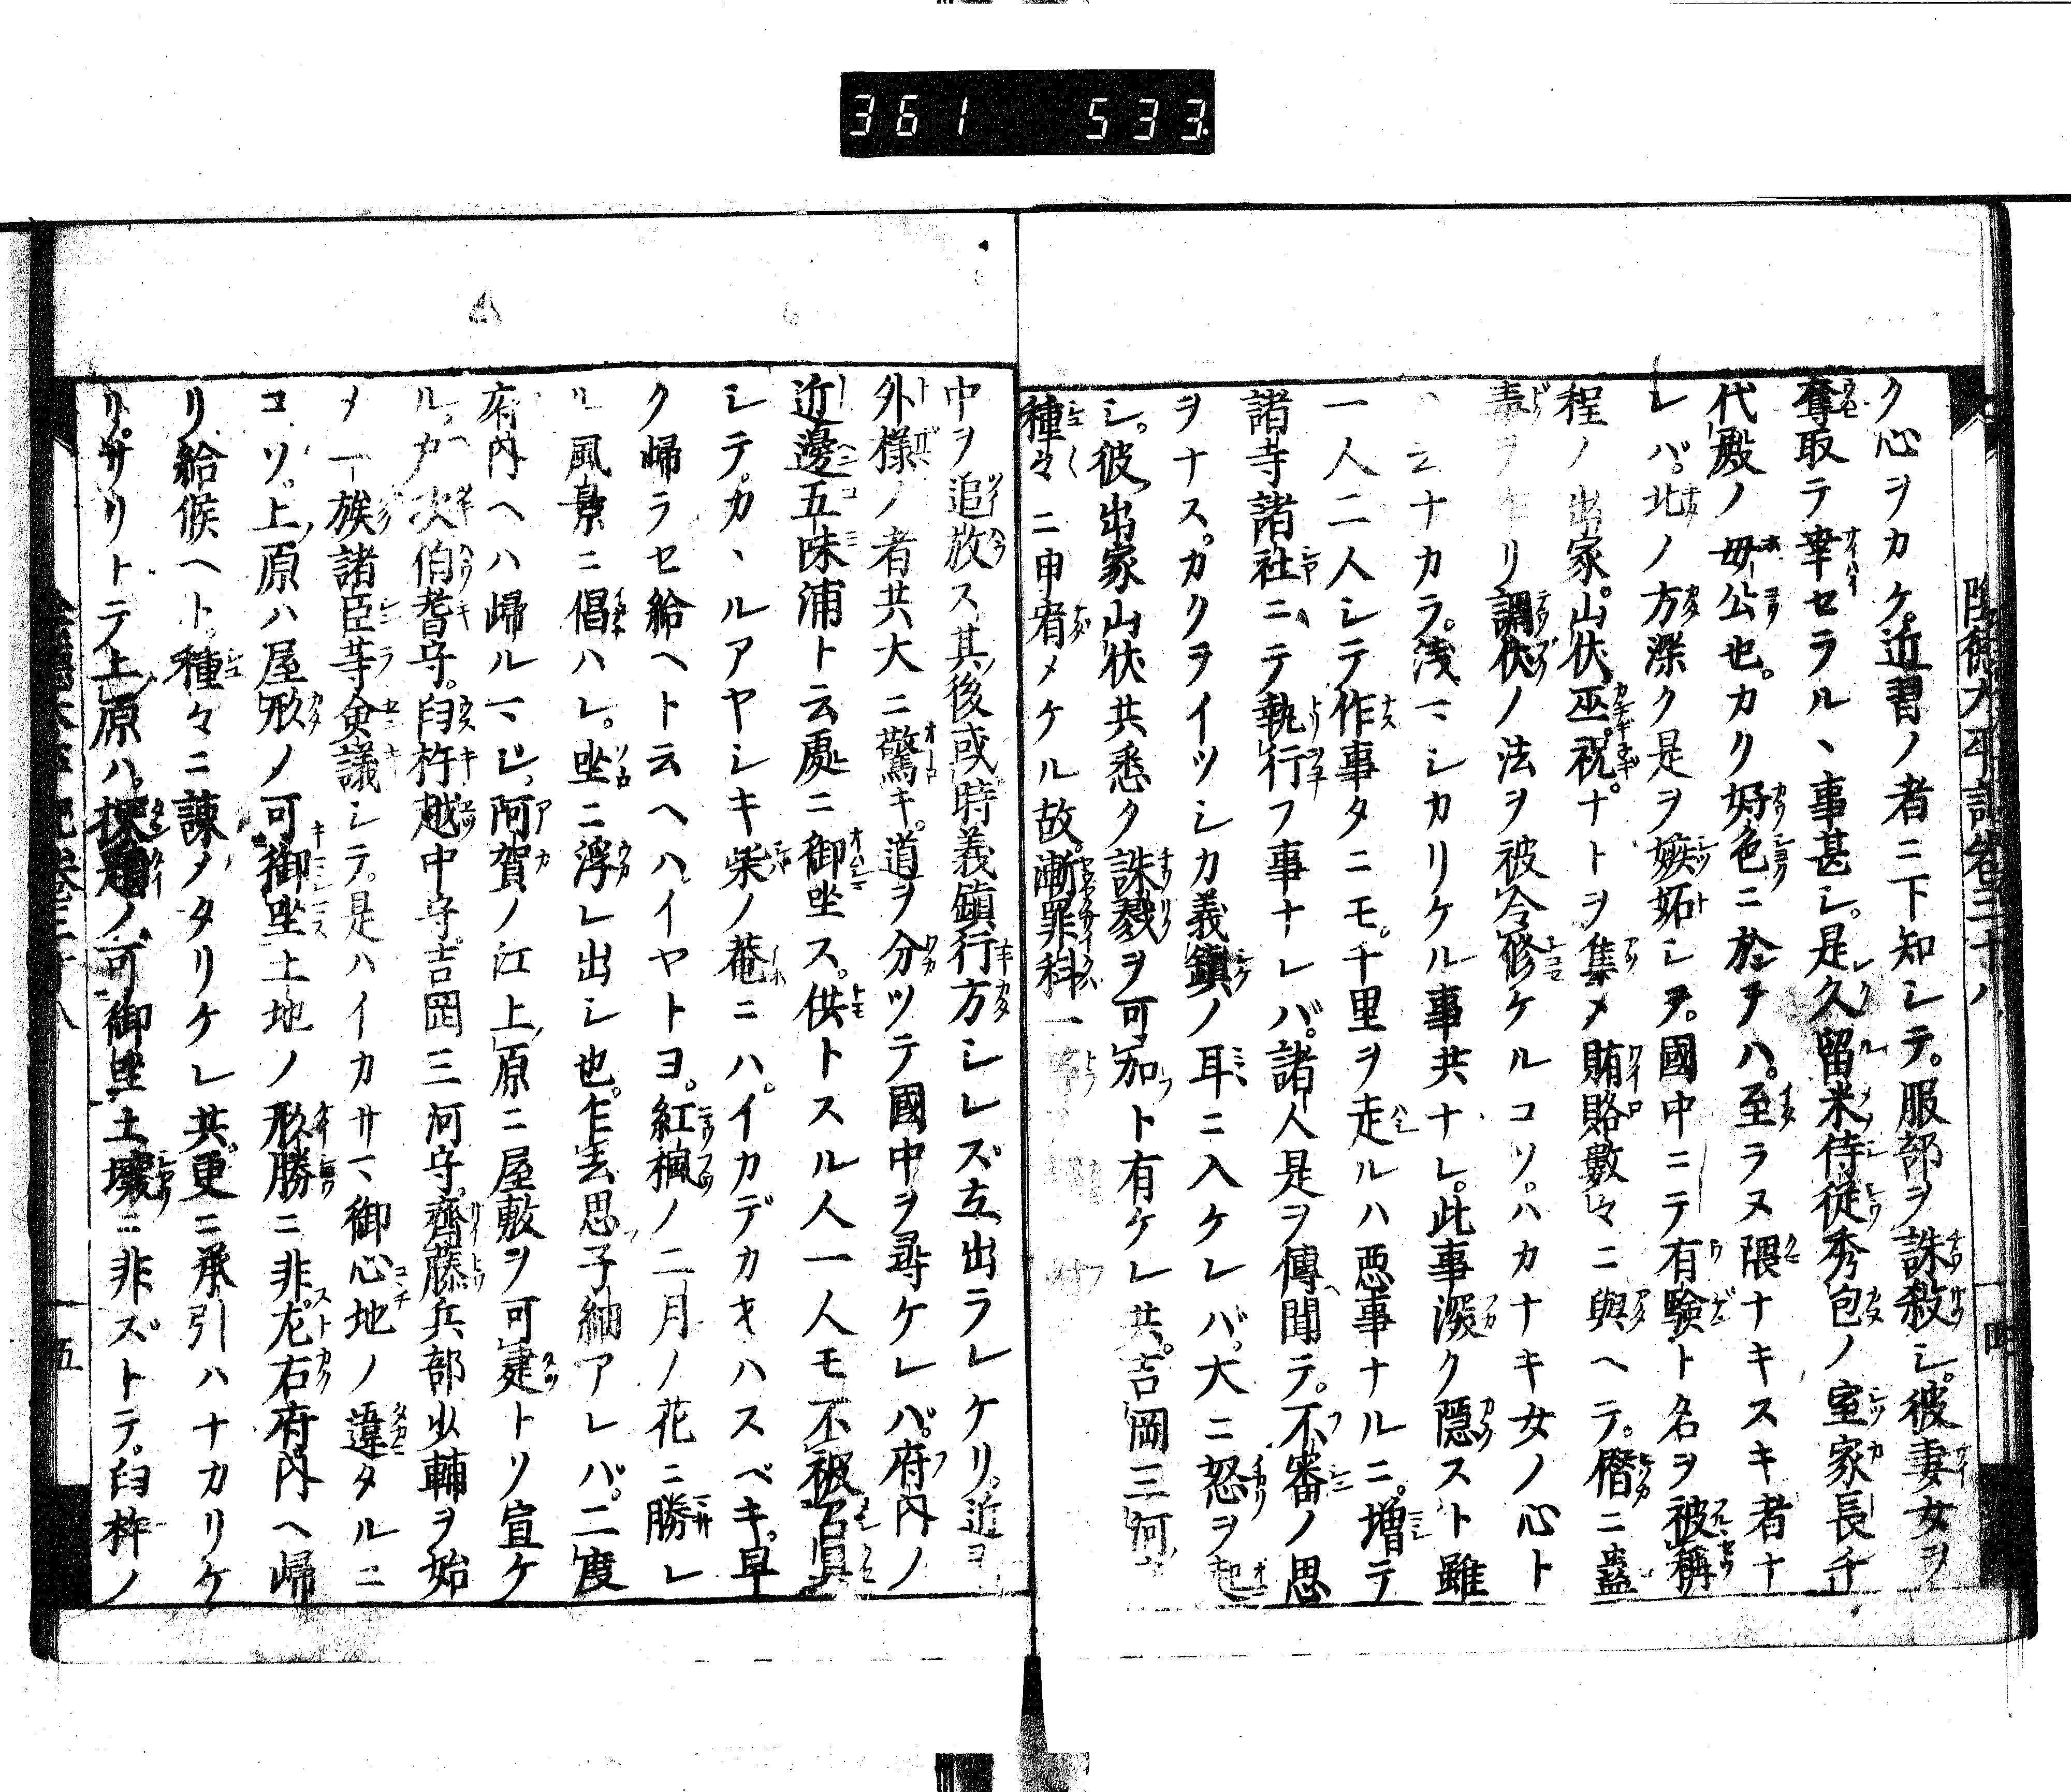 361 533.
陰徳太平記巻三十八
ク心ヲカケ。近習ノ者ニ下知シテ。服部ヲ誅殺シ。彼妻女ヲ
奪取テ幸セラル、事甚シ。是久留米侍従秀包ノ室家長千
代殿ノ母公也。カク好色ニ於テハ。至ラヌ隈ナキスキ者ナ
レバ。北ノ方深ク是ヲ嫉妬シ玉ヒ。國中ニテ有験ト名ヲ被稱
程ノ出家。山伏巫祝ナトヲ集メ賄賂數々ニ與ヘテ。潛ニ蠱
毒ヲ作リ調伏ノ法ヲ被令修ケルコソ。ハカナキ女ノ心ト
ハ云ナカラ。浅マシカリケル事共ナレ。此事深ク隠スト雖
一人二人シテ作事タニモ。千里ヲ走ルハ悪事ナルニ。増テ
諸寺諸社ニテ執行フ事ナレバ。諸人是ヲ傳聞テ。不審ノ思
ヲナス。カクヲイツシカ義鎮ノ耳ニ入ケレバ。大ニ怒ヲ起
シ。彼出家山伏共悉ク誅戮ヲ可加ト有ケレ共。吉岡三河
種々ニ申宥メケル故。漸罪科一
中ヲ追放ス其後或時義鎮行方シレズ立出ラレケリ。近ヲ
外様ノ者共大ニ驚キ。道ヲ分ツテ國中ヲ尋ケレバ。府内ノ
近邊五味浦ト云處ニ御坐ス。供トスル人一人モ不被召具
シテ。カヽルアヤシキ柴ノ菴ニハ。イカデカオハスベキ。早
ク帰ラセ給ヘト云ヘハ。イヤトヨ。紅楓ノ二月ノ花ニ勝レ
ル風景ニ倡ハレ。坐ニ浮レ出シ也。乍去思子細アレバ。二度
府内ヘハ帰ルマジ。阿賀ノ江上原ニ屋敷ヲ可建トソ宣ケ
ル。戸次伯耆守。臼杵越中守。吉岡三河守。齋藤兵部少輔ヲ始
メ一族諸臣等僉議シテ。是ハイカサマ御心地ノ違タルニ
コソ。上原ハ屋形ノ可御坐土地ノ形勝ニ非。左右府内ヘ帰
リ給候ヘト。種々ニ諫メタリケレ共。更ニ承引ハナカリケ
リ。サリトテ上原ハ。探題ノ可御坐土壌ニ非ズトテ。臼杵ノ